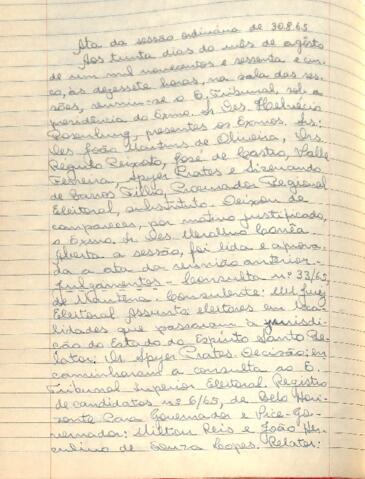 Ata da sessão ordinária de 30.8.65
Aos trinta dias do mês de agôsto
de um mil novecentos e sessenta e cin-
co, às dezessete horas, na sala das ses-
sões, reuniu-se o E. Tribunal, sob a
presidência do Exmo. Sr. Des. Helvécio
Rosenburg, presentes os Exmos. Srs.:
Des. João Martins de Oliveira, Drs.
Régulo Peixoto, José de Castro, Valle
Ferreira, Spyer Prates e Sizenando
de Barros Filho, Procurador Regional
Eleitoral, substituto. Deixou de
comparecer, por motivo justificado,
o Exmo. Sr. Des. Merolino Corrêa.
Aberta a sessão, foi lida e aprova-
da a ata da reunião anterior.
Julgamentos - Consulta nº 33/65,
de Mantena. Consulente: MM. Juiz
Eleitoral. Assunto: eleitores em loca-
lidades que passaram à jurisdi-
ção do Estado do Espírito Santo. Re-
lator: Dr. Spyer Prates. Decisão: en-
caminharam a consulta ao E.
Tribunal Superior Eleitoral. Registro
de candidatos nº 6/65, de Belo Hori-
zonte. Para Governador e Vice-Go-
vernador: Milton Reis e João Her-
culino de Souza Lopes. Relator: